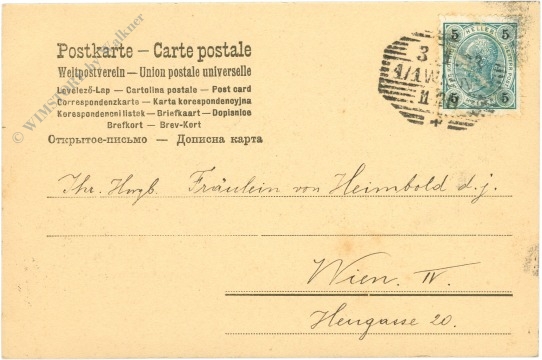 Postkarte — Carte postale
Weltpostverein — Union postale universelle
Levelező-Lap — Cartolina postale — Post card
Correspondenzkarte — Karta korespondencyjna
Korespondenčni listek — Briefkaart — Dopisnice
Brefkort — Brev-Kort
Открытое-письмо — Дописна карта
© WIMSTAR by Walkner
5 HELLER 5
5 5
3
4/1 WIEN
Ihr. Hwgb. Fräulein von Heimbold d. j.
Wien. IV.
Heugasse 20.